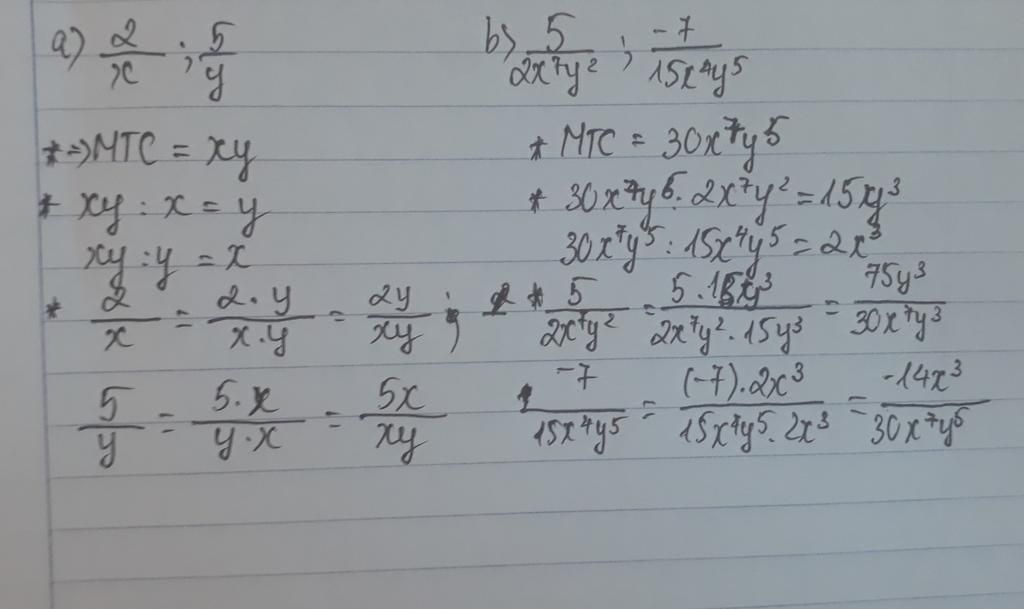 a) 2/x ; 5/y
*⇒ MTC = xy
* xy : x = y
xy : y = x
* 2/x = 2.y/x.y = 2y/xy ;
5/y = 5.x/y.x = 5x/xy
b) 5/2x⁷y² ; -7/15x⁴y⁵
* MTC = 30x⁷y⁵
* 30x⁷y⁵ : 2x⁷y² = 15xy³
30x⁷y⁵ : 15x⁴y⁵ = 2x³
* 5/2x⁷y² = 5.15y³/2x⁷y².15y³ = 75y³/30x⁷y³
-7/15x⁴y⁵ = (-7).2x³/15x⁴y⁵.2x³ = -14x³/30x⁷y⁵